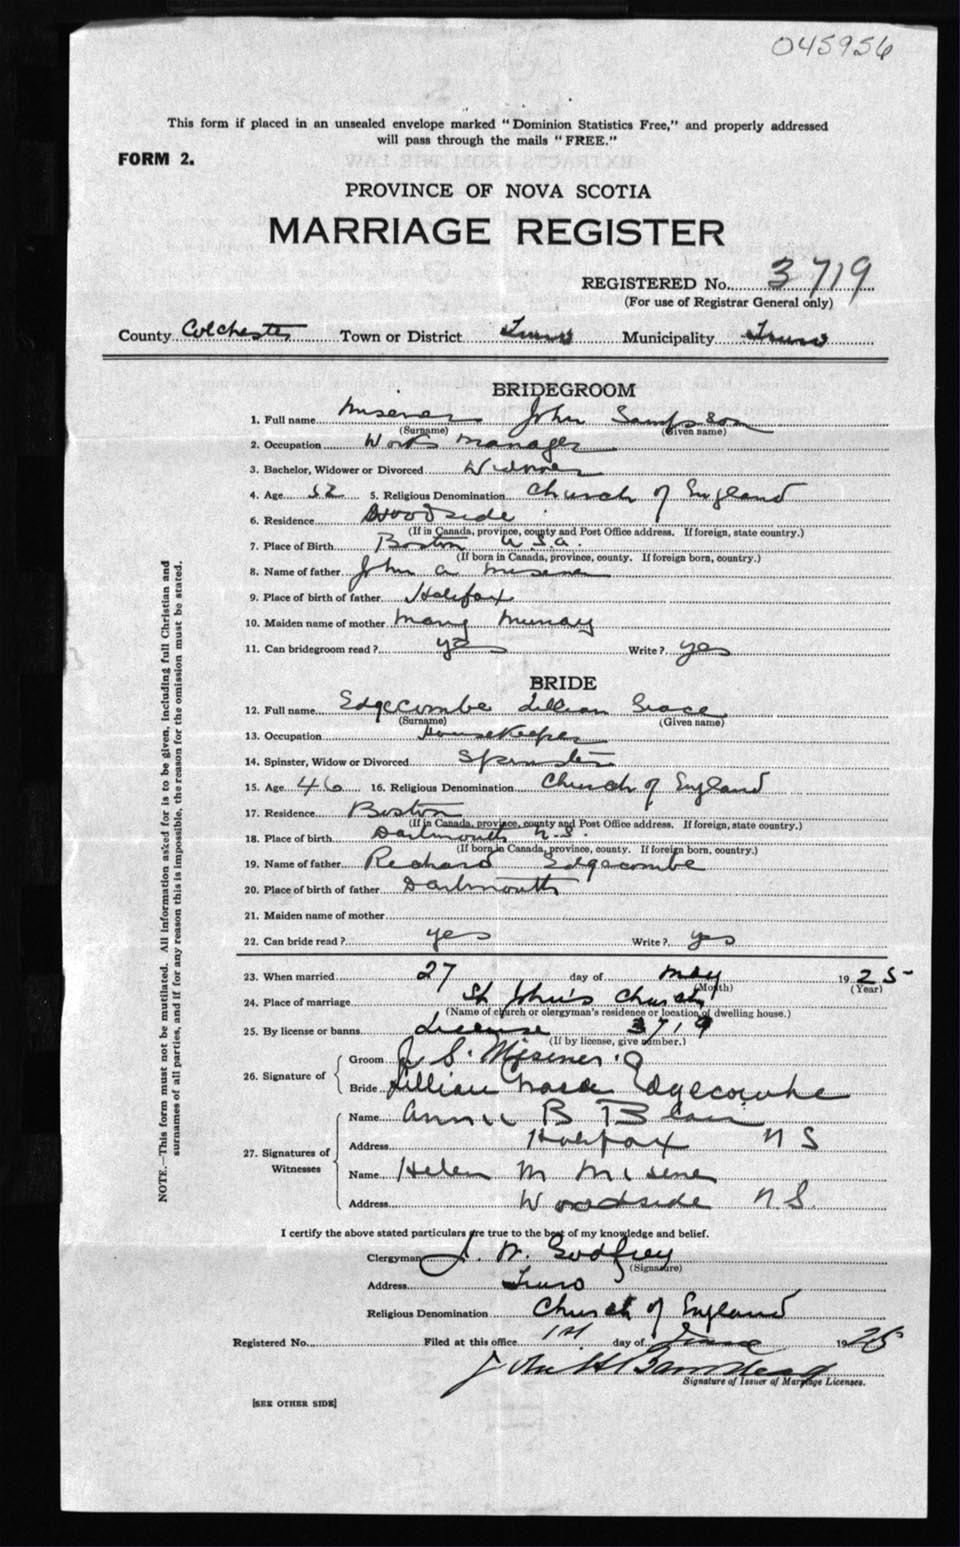 045956
This form if placed in an unsealed envelope marked "Dominion Statistics Free," and properly addressed
will pass through the mails "FREE."
FORM 2.
PROVINCE OF NOVA SCOTIA
MARRIAGE REGISTER
REGISTERED No. 3719
(For use of Registrar General only)
County Colchester Town or District Truro Municipality Truro
BRIDEGROOM
1. Full name Misener John Sampson
(Surname) (Given name)
2. Occupation Works manager
3. Bachelor, Widower or Divorced Widower
4. Age 52 5. Religious Denomination Church of England
6. Residence Woodside
(If in Canada, province, county and Post Office address. If foreign, state country.)
7. Place of Birth Boston U.S.a.
(If born in Canada, province, county. If foreign born, country.)
8. Name of father John a misener
9. Place of birth of father Halifax
10. Maiden name of mother Mary Murray
11. Can bridegroom read? yes Write? yes
BRIDE
12. Full name Edgecombe Lillian Grace
(Surname) (Given name)
13. Occupation Housekeeper
14. Spinster, Widow or Divorced Spinster
15. Age 46 16. Religious Denomination Church of England
17. Residence Boston
(If in Canada, province, county and Post Office address. If foreign, state country.)
18. Place of birth Dartmouth N.S.
(If born in Canada, province, county. If foreign born, country.)
19. Name of father Richard Edgecombe
20. Place of birth of father Dartmouth
21. Maiden name of mother
22. Can bride read? yes Write? yes
23. When married 27 day of may 1925
(Month) (Year)
24. Place of marriage St John's Church
(Name of church or clergyman's residence or location of dwelling house.)
25. By license or banns License 3719
(If by license, give number.)
26. Signature of Groom J. S. Misener
Bride Lillian Grace Edgecombe
27. Signatures of Witnesses Name Annie B Blair
Address Halifax N S
Name Helen M Misener
Address Woodside N.S.
I certify the above stated particulars are true to the best of my knowledge and belief.
Clergyman J. W. Godfrey
(Signature)
Address Truro
Religious Denomination Church of England
Registered No. Filed at this office 1st day of June 1925
John H
Signature of Issuer of Marriage Licenses.
[SEE OTHER SIDE]
NOTE.—This form must not be mutilated. All information asked for is to be given, including full Christian and
surnames of all parties, and if for any reason this is impossible, the reason for the omission must be stated.